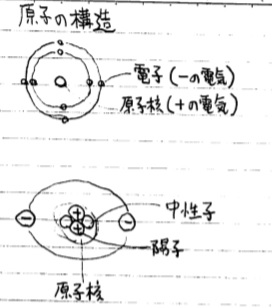 原子の構造
電子(−の電気)
原子核(+の電気)
中性子
陽子
原子核